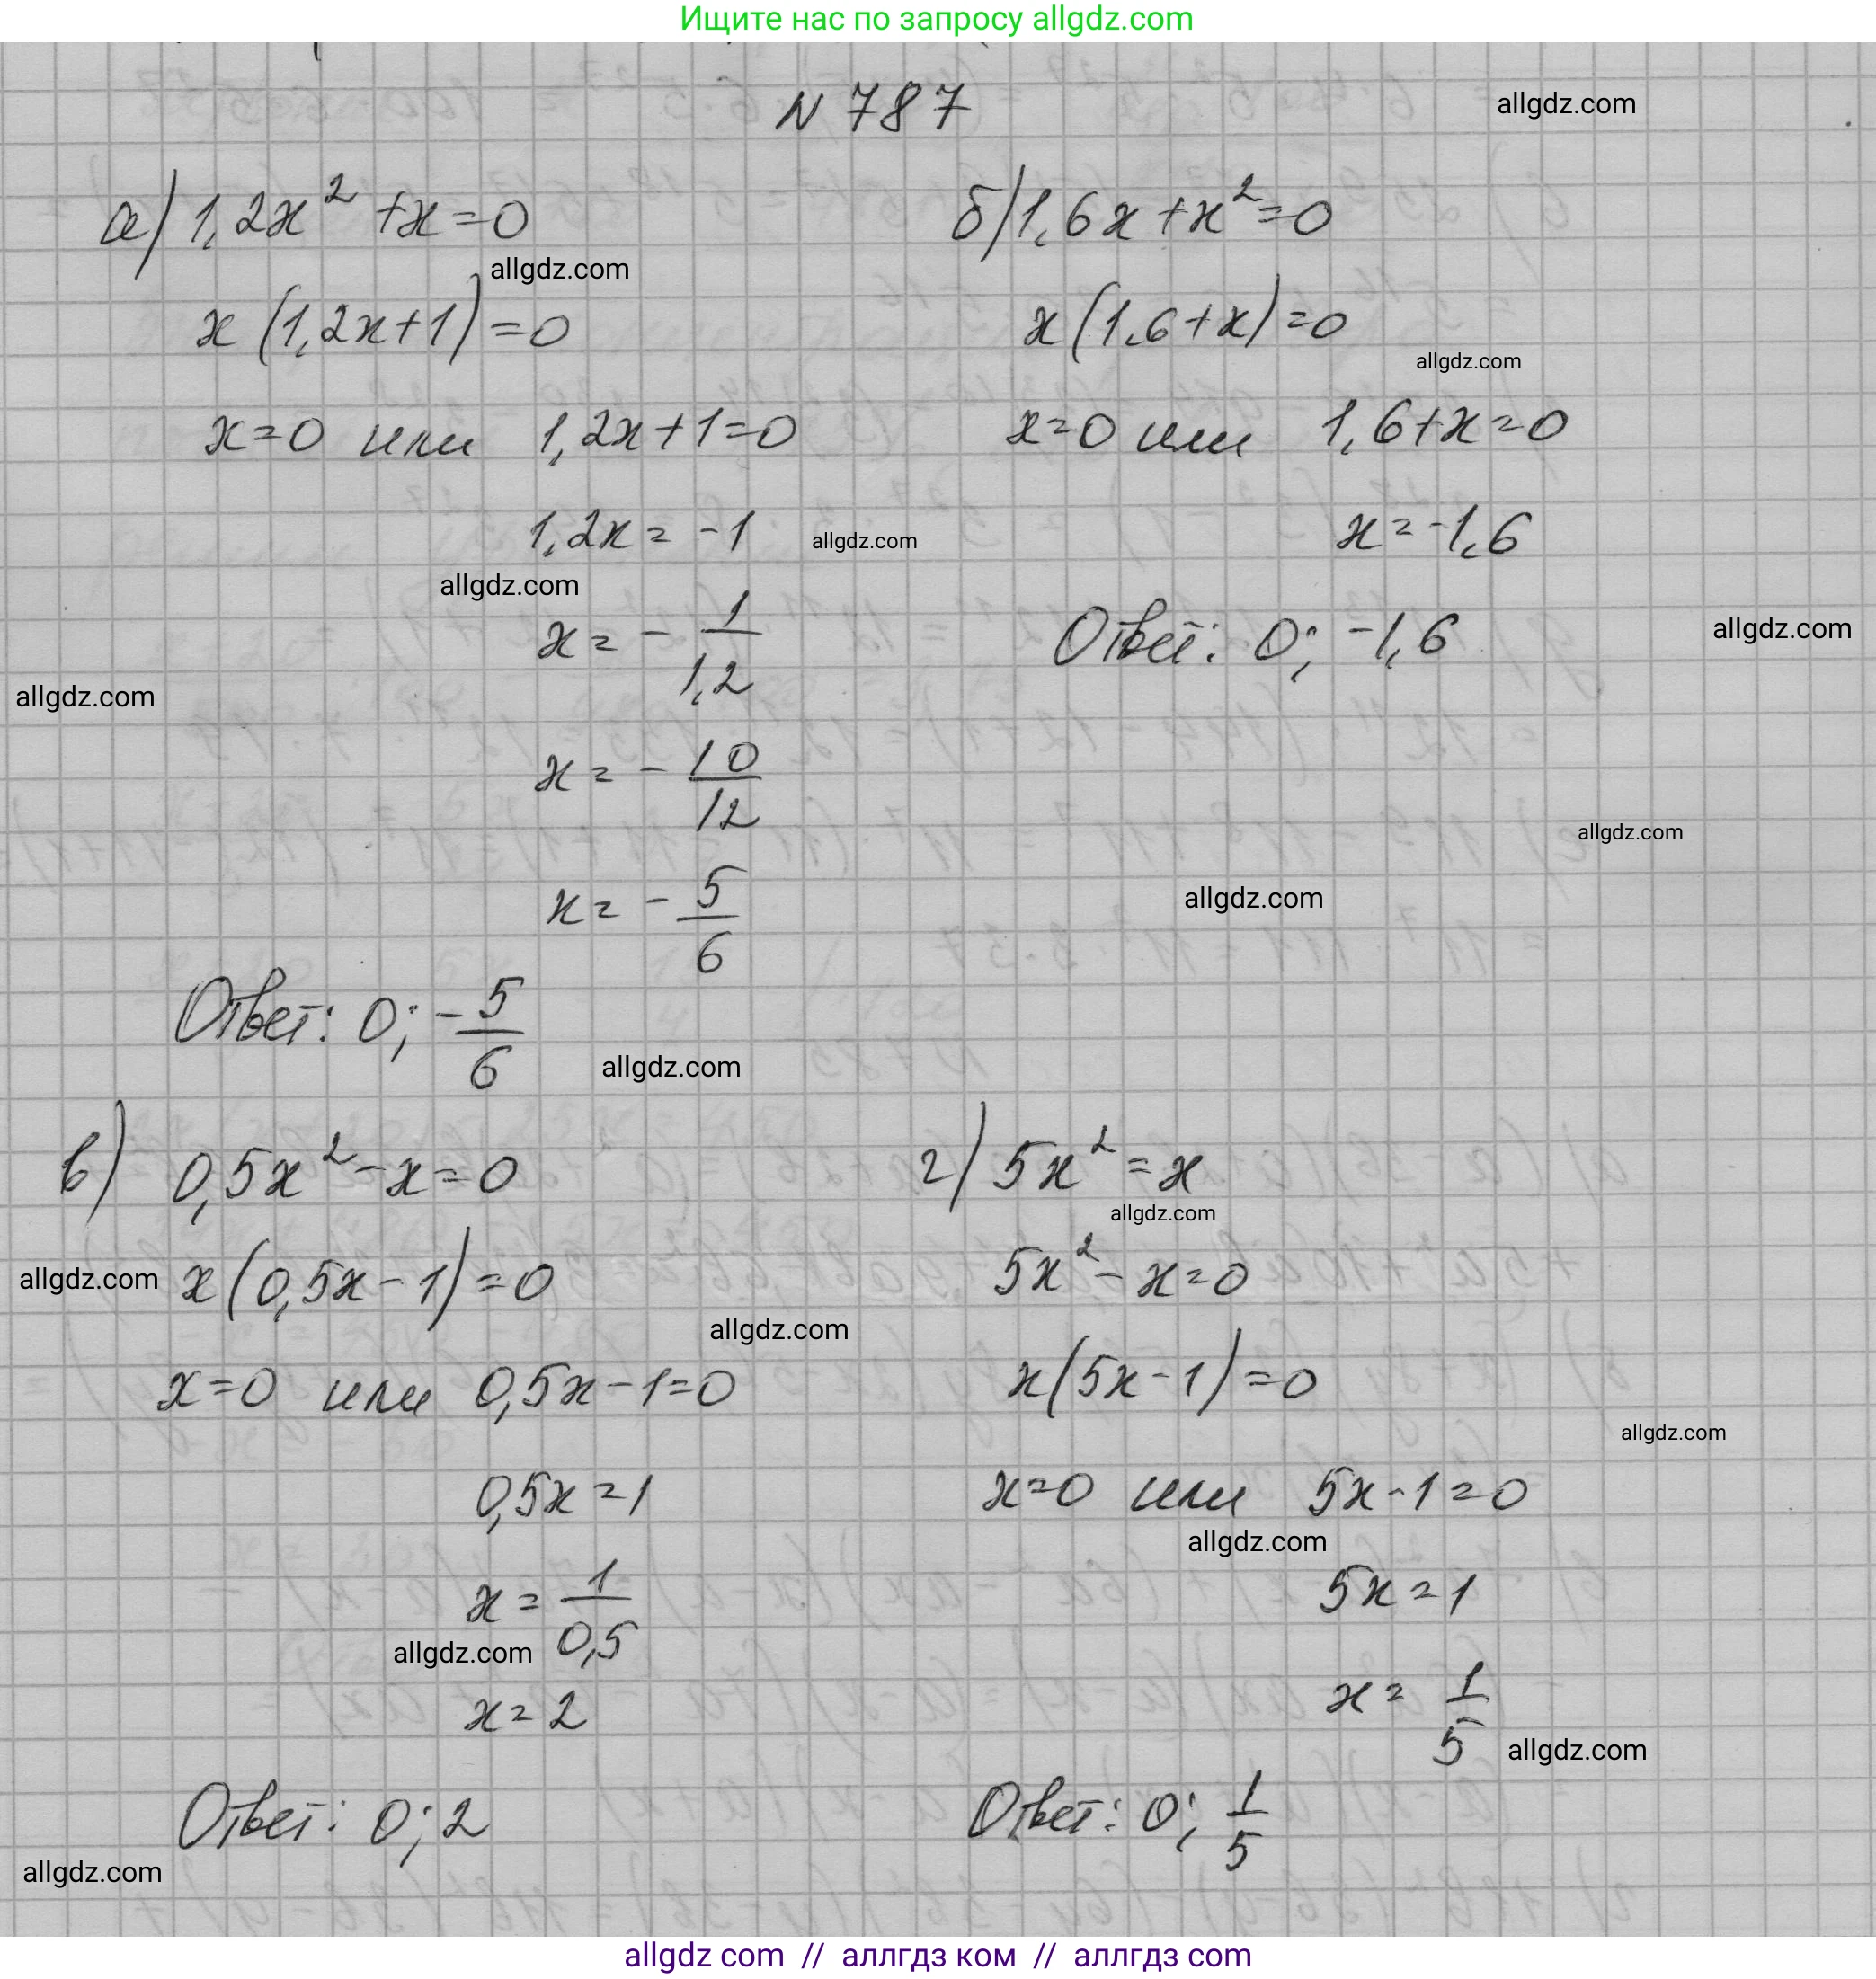 Ищите нас по запросу allgdz.com
N 787
allgdz.com
а) 1,2x² + x = 0
allgdz.com
x (1,2x + 1) = 0
x = 0 или 1,2x + 1 = 0
1,2x = -1
allgdz.com
allgdz.com
x = - 1/1,2
allgdz.com
x = - 10/12
x = - 5/6
Ответ: 0; - 5/6
allgdz.com
б) 1,6x + x² = 0
x (1,6 + x) = 0
allgdz.com
x = 0 или 1,6 + x = 0
x = -1,6
Ответ: 0; -1,6
allgdz.com
allgdz.com
allgdz.com
в) 0,5x² - x = 0
allgdz.com
x (0,5x - 1) = 0
allgdz.com
x = 0 или 0,5x - 1 = 0
0,5x = 1
x = 1/0,5
allgdz.com
x = 2
Ответ: 0; 2
allgdz.com
г) 5x² = x
allgdz.com
5x² - x = 0
x (5x - 1) = 0
allgdz.com
x = 0 или 5x - 1 = 0
allgdz.com
5x = 1
x = 1/5
allgdz.com
Ответ: 0; 1/5
allgdz com // аллгдз ком // аллгдз com